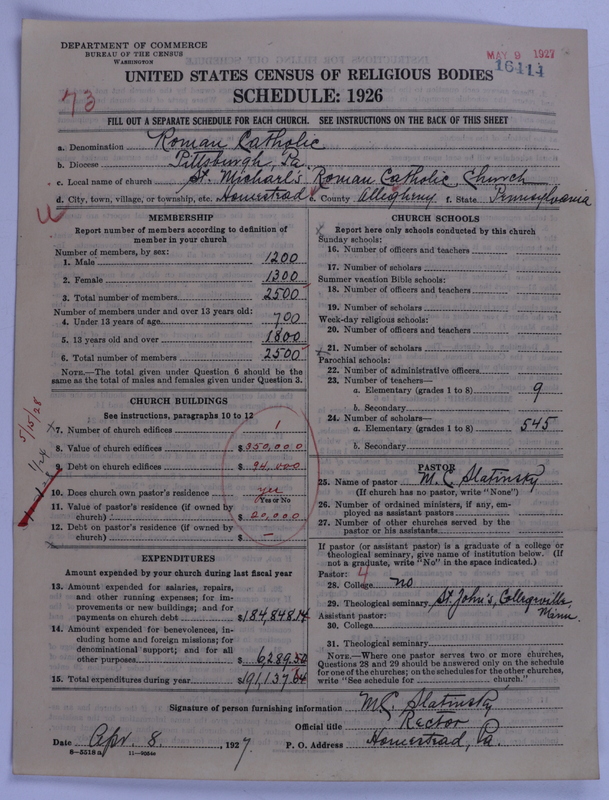 DEPARTMENT OF COMMERCE
BUREAU OF THE CENSUS
WASHINGTON
MAY 9 1927
16414
UNITED STATES CENSUS OF RELIGIOUS BODIES
SCHEDULE: 1926
73
FILL OUT A SEPARATE SCHEDULE FOR EACH CHURCH. SEE INSTRUCTIONS ON THE BACK OF THIS SHEET
a. Denomination Roman Catholic
b. Diocese Pittsburgh, Pa.
c. Local name of church St. Michael's Roman Catholic Church
d. City, town, village, or township, etc. Homestead e. County Allegheny f. State Pennsylvania
MEMBERSHIP
Report number of members according to definition of
member in your church
Number of members, by sex:
1. Male 1200
2. Female 1300
3. Total number of members 2500
Number of members under and over 13 years old:
4. Under 13 years of age 700
5. 13 years old and over 1800
6. Total number of members 2500
NOTE.—The total given under Question 6 should be
the same as the total of males and females given under Question 3.
CHURCH BUILDINGS
See instructions, paragraphs 10 to 12
5/15/28
7. Number of church edifices 1
8. Value of church edifices $ 350,000
9. Debt on church edifices $ 94,000
10. Does church own pastor's residence yes
Yes or No
11. Value of pastor's residence (if owned by
church) $ 20,000
12. Debt on pastor's residence (if owned by
church) $ —
EXPENDITURES
Amount expended by your church during last fiscal year
13. Amount expended for salaries, repairs,
and other running expenses; for im-
provements or new buildings; and for
payments on church debt $184,848.14
14. Amount expended for benevolences, in-
cluding home and foreign missions; for
denominational support; and for all
other purposes $ 6,289.50
15. Total expenditures during year $191,137.64
CHURCH SCHOOLS
Report here only schools conducted by this church
Sunday schools:
16. Number of officers and teachers
17. Number of scholars
Summer vacation Bible schools:
18. Number of officers and teachers
19. Number of scholars
Week-day religious schools:
20. Number of officers and teachers
21. Number of scholars
Parochial schools:
22. Number of administrative officers
23. Number of teachers—
a. Elementary (grades 1 to 8) 9
b. Secondary
24. Number of scholars—
a. Elementary (grades 1 to 8) 545
b. Secondary
PASTOR
25. Name of pastor M. C. Slatinsky
(If church has no pastor, write "None")
26. Number of ordained ministers, if any, em-
ployed as assistant pastors
27. Number of other churches served by the
pastor or his assistants
If pastor (or assistant pastor) is a graduate of a college or
theological seminary, give name of institution below. (If
not a graduate, write "No" in the space indicated.)
Pastor: 4
28. College no
29. Theological seminary St. John's, Collegeville,
Minn.
Assistant pastor:
30. College
31. Theological seminary
NOTE.—Where one pastor serves two or more churches,
Questions 28 and 29 should be answered only on the schedule
for one of the churches; on the schedules for the other churches,
write "See schedule for church."
Signature of person furnishing information M. C. Slatinsky
Official title Rector
Date Apr. 8, 1927. P. O. Address Homestead, Pa.
8—5518a